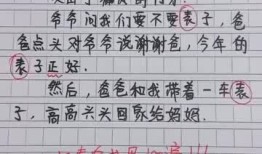 爷爷问我们要不要表子,爸
爸点头对爷爷说谢谢爸,今年的
表子正好.
然后,爸爸和我带着一车表
子,高高兴兴回家给妈妈.